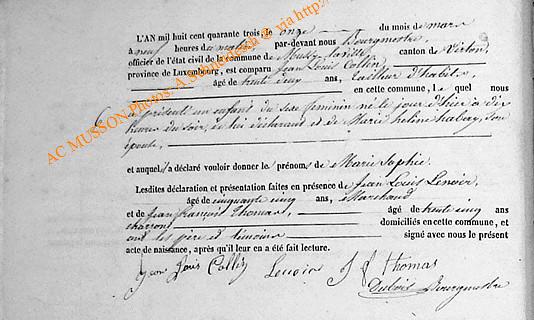 L'AN mil huit cent quarante trois, le onze du mois de mars
à neuf heures du matin, par-devant nous Bourgmestre,
officier de l'état civil de la commune de Mussy-la-ville canton de Virton,
province de Luxembourg, est comparu Jean Louis Collin,
âgé de trente deux ans, tailleur d'habits,
en cette commune, le quel nous
a présenté un enfant du sexe feminin né le jour d'hier à dix
heures du soir, de lui déclarant et de Marie son
épouse,
et auquel a déclaré vouloir donner le prénoms de Marie Sophie.
Lesdites déclaration et présentation faites en présence de Jean Louis Lenoir,
âgé de cinquante cinq ans, Marchand
et de Jean François Thomas, âgé de trente cinq ans
charron domiciliés en cette commune, et
ont les père et témoins signé avec nous le présent
acte de naissance, après qu'il leur en a été fait lecture.
Jean Louis Collin Lenoir J f thomas
Dubois Bourgmestre
AC MUSSON Photos: A Schmedesch @ via http:/